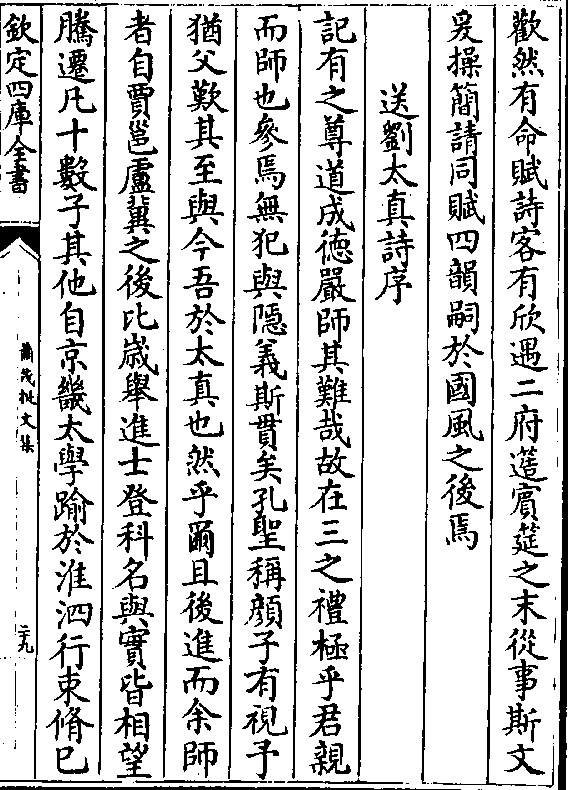 歡然有命賦詩客有欣遇二府簉賓筵之末從事斯文
爰操簡請同賦四韻嗣於國風之後焉
送劉太真詩序
記有之尊道成徳嚴師其難哉故在三之禮極乎君親
而師也參焉無犯與隱義斯貫矣孔聖稱顔子有視予
猶父歎其至與今吾於太真也然乎爾且後進而余師
者自賈邕盧冀之後比歳舉進士登科名與實皆相望
騰遷凡十數子其他自京畿太學踰於淮泗行束脩已
欽定四庫全書
蕭茂挺文集
二十九